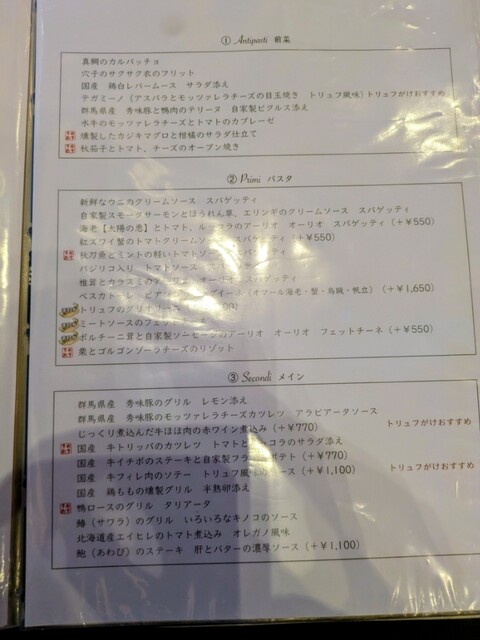 ① Antipasti 前菜
真鯛のカルパッチョ
穴子のサクサク衣のフリット
国産 鶏白レバームース サラダ添え
テガミーノ(アスパラとモッツァレラチーズの目玉焼き トリュフ風味)トリュフがけおすすめ
群馬県産 秀味豚と鴨肉のテリーヌ 自家製ピクルス添え
水牛のモッツァレラチーズとトマトのカプレーゼ
燻製したカジキマグロと柑橘のサラダ仕立て
秋茄子とトマト、チーズのオーブン焼き
② Primi パスタ
新鮮なウニのクリームソース スパゲッティ
自家製スモークサーモンとほうれん草、エリンギのクリームソース スパゲッティ
海老【太陽の恵】とトマト、ルッコラのアーリオ オーリオ スパゲッティ(+¥550)
紅ズワイ蟹のトマトクリームソース スパゲッティ(+¥550)
秋刀魚とミントの軽いトマトソース
バジリコ入り トマトソース
椎茸とカラスミの スパゲッティ
ペスカトーレ (オマール海老・蟹・烏賊・帆立)(+¥1,650)
トリュフの
ミートソースのフェットチーネ
ポルチーニ茸と自家製ソーセージのアーリオ オーリオ フェットチーネ(+¥550)
栗とゴルゴンゾーラチーズのリゾット
③ Secondi メイン
群馬県産 秀味豚のグリル レモン添え
群馬県産 秀味豚のモッツァレラチーズカツレツ アラビアータソース
じっくり煮込んだ牛ほほ肉の赤ワイン煮込み(+¥770) トリュフがけおすすめ
国産 牛トリッパのカツレツ トマトとルッコラのサラダ添え
国産 牛イチボのステーキと自家製フライドポテト(+¥770)
国産 牛フィレ肉のソテー トリュフ風味のソース(+¥1,100) トリュフがけおすすめ
国産 鶏ももの燻製グリル 半熟卵添え
鴨ロースのグリル タリアータ
鰆(サワラ)のグリル いろいろなキノコのソース
北海道産エイヒレのトマト煮込み オレガノ風味
鮑(あわび)のステーキ 肝とバターの濃厚ソース(+¥1,100)